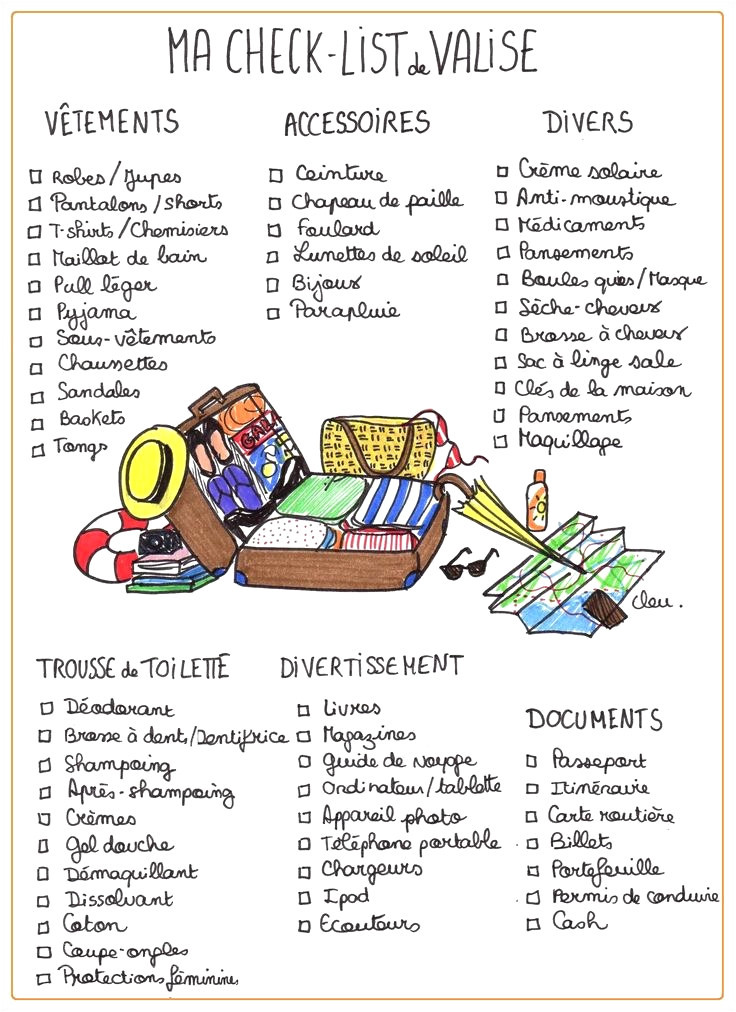 MA CHECK-LIST de VALISE
VÊTEMENTS
Robes/Jupes
Pantalons/shorts
T-shirts/Chemisiers
Maillot de bain
Pull léger
Pyjama
Sous-vêtements
Chaussettes
Sandales
Baskets
Tongs
ACCESSOIRES
Ceinture
Chapeau de paille
Foulard
Lunettes de soleil
Bijoux
Parapluie
DIVERS
Crème solaire
Anti-moustique
Médicaments
Pansements
Boules quies/Masque
Sèche-cheveux
Brosse à cheveux
Sac à linge sale
Clés de la maison
Pansements
Maquillage
Cleu.
TROUSSE de TOILETTE
Déodorant
Brosse à dent/Dentifrice
Shampoing
Après-shampoing
Crèmes
Gel douche
Démaquillant
Dissolvant
Coton
Coupe-ongles
Protections féminines
DIVERTISSEMENT
Livres
Magazines
Guide de voyage
Ordinateur/tablette
Appareil photo
Téléphone portable
Chargeurs
Ipod
Ecouteurs
DOCUMENTS
Passeport
Itinéraire
Carte routière
Billets
Portefeuille
Permis de conduire
Cash